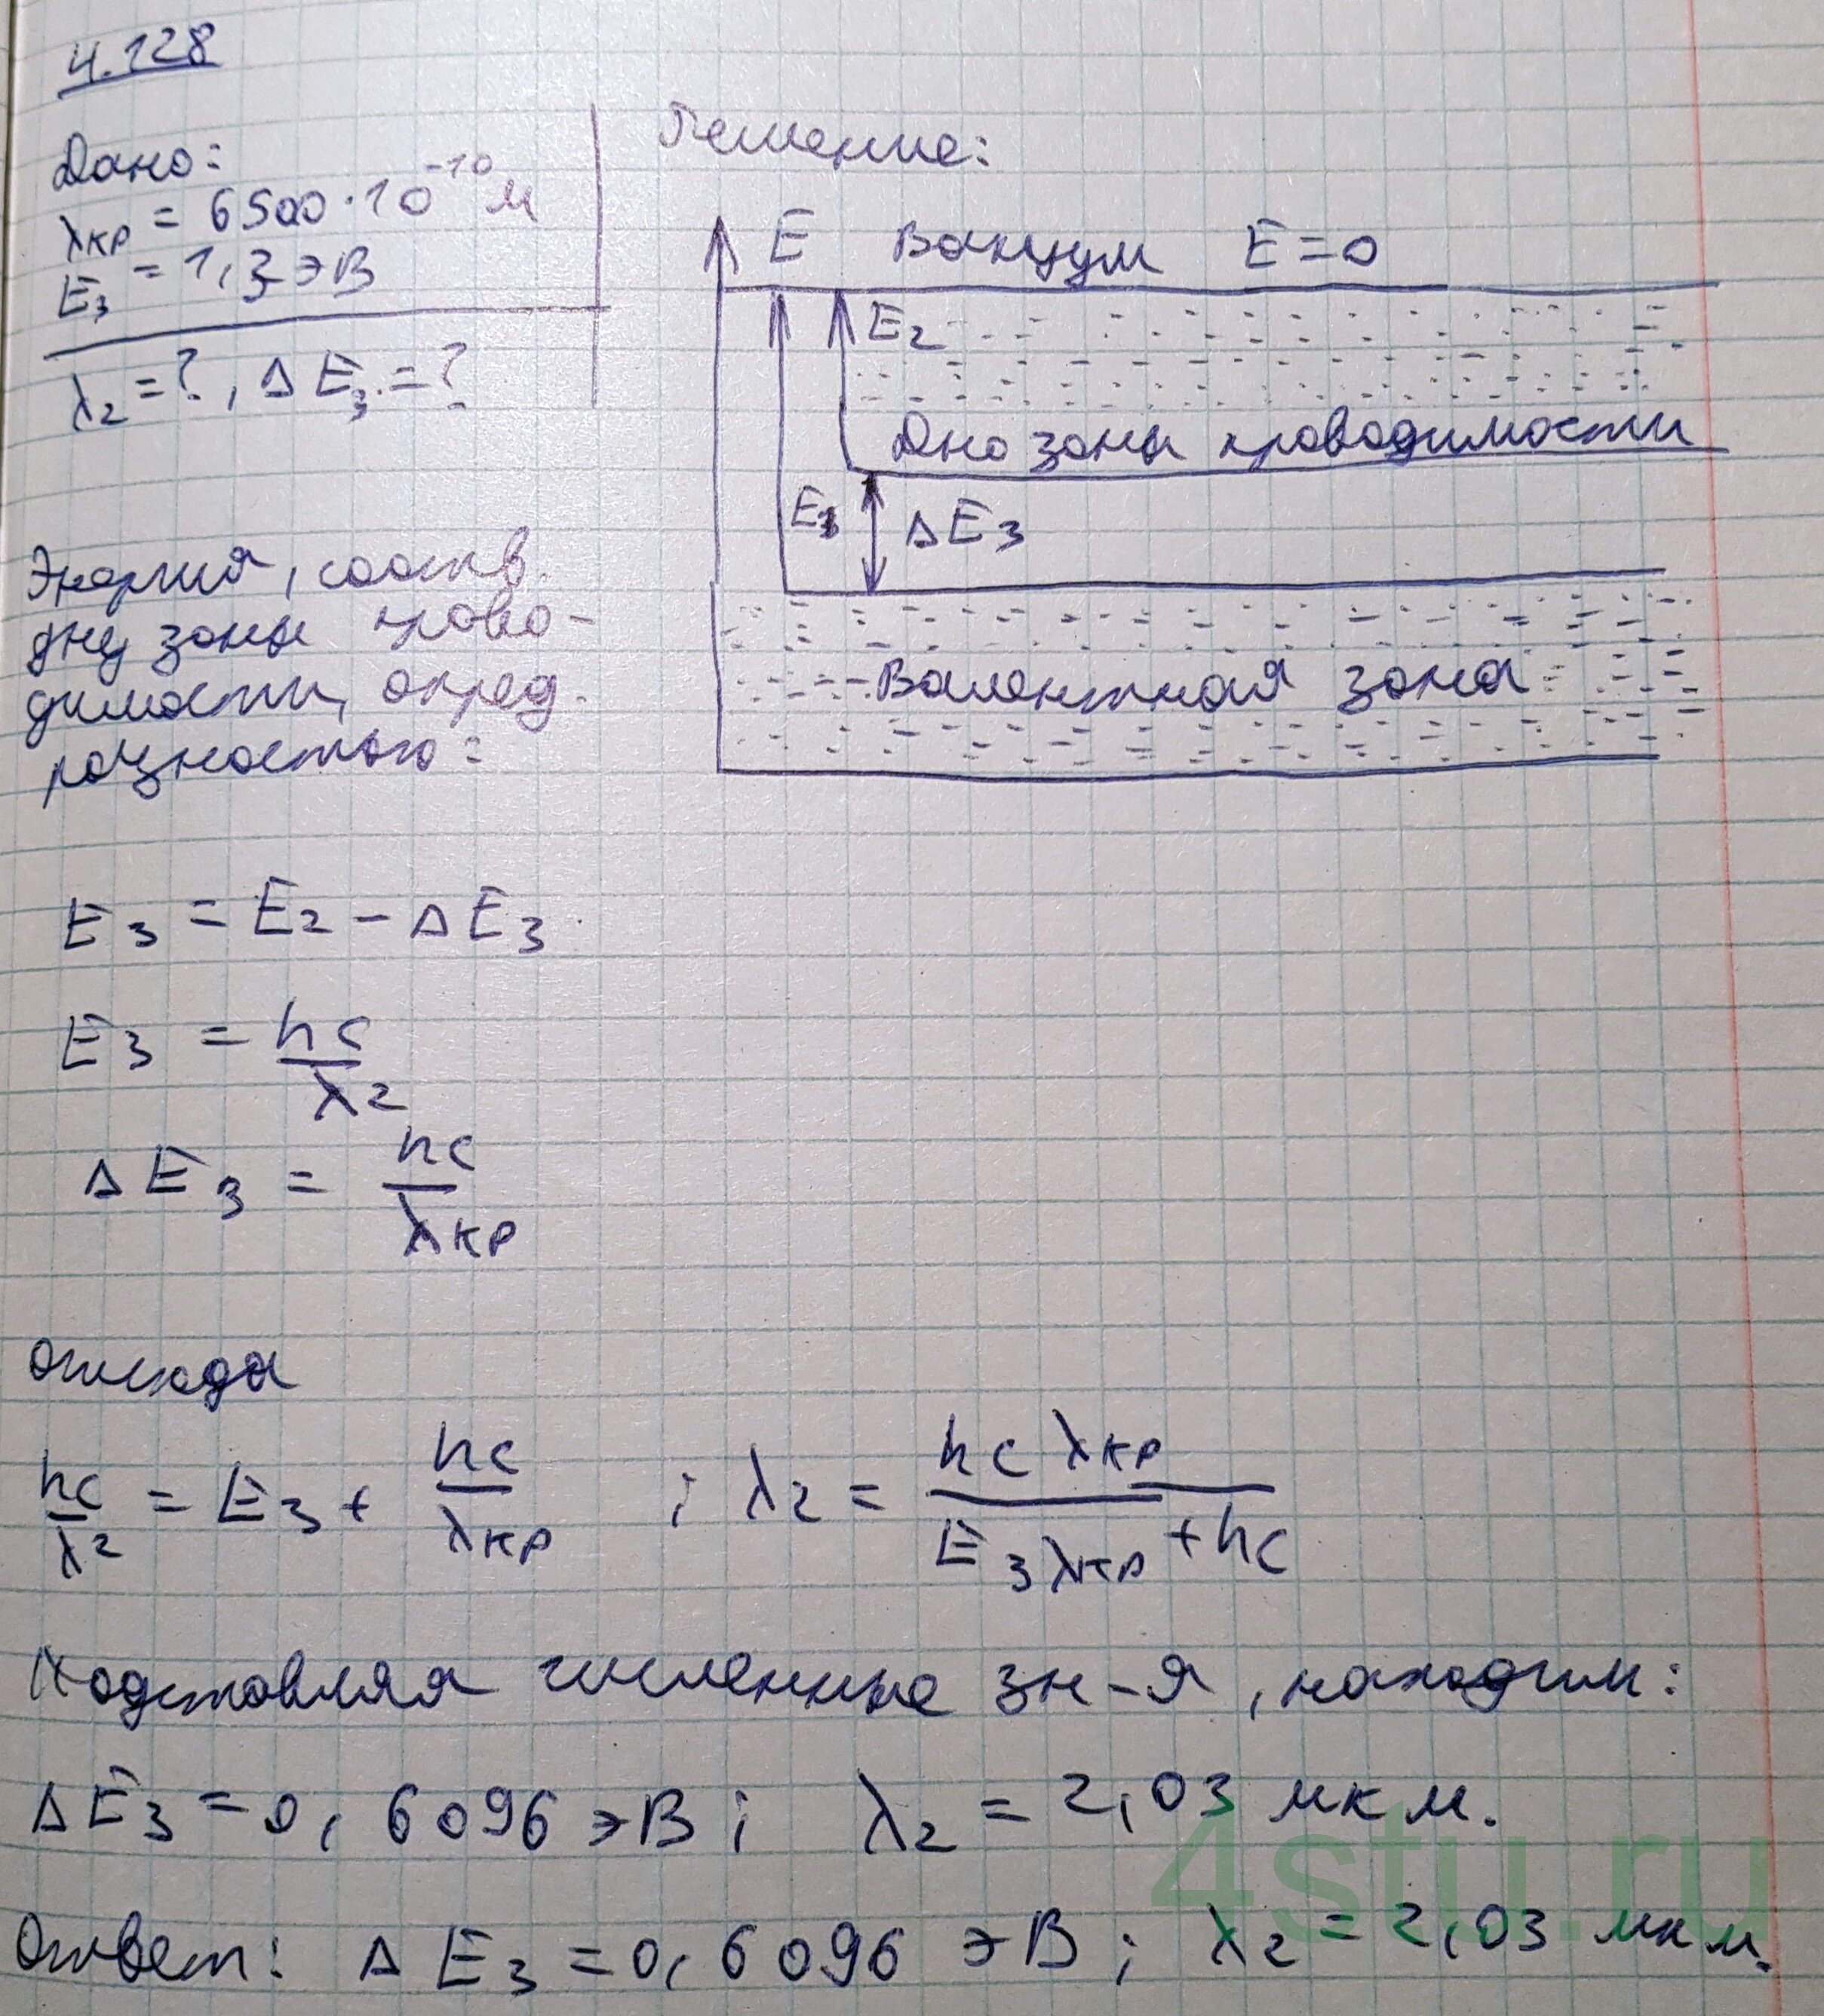 4.128
Дано:
λкр = 6500·10⁻¹⁰ м
Eз = 1,3 эВ
λ₂ = ?, ΔEз = ?
Решение:
E Вакуум E=0
E₂
Дно зоны проводимости
E₁ ΔE₃
Валентная зона
Энергия, соотв.
дну зоны прово-
димости, опред.
разностью:
E₃ = E₂ - ΔE₃
E₃ = hc/λ₂
ΔE₃ = hc/λкр
откуда
hc/λ₂ = E₃ + hc/λкр ; λ₂ = hcλкр/(E₃λкр + hc)
Подставляя численные зн-я, находим:
ΔE₃ = 0,6096 эВ; λ₂ = 2,03 мкм.
Ответ: ΔE₃ = 0,6096 эВ; λ₂ = 2,03 мкм.
4stu.ru